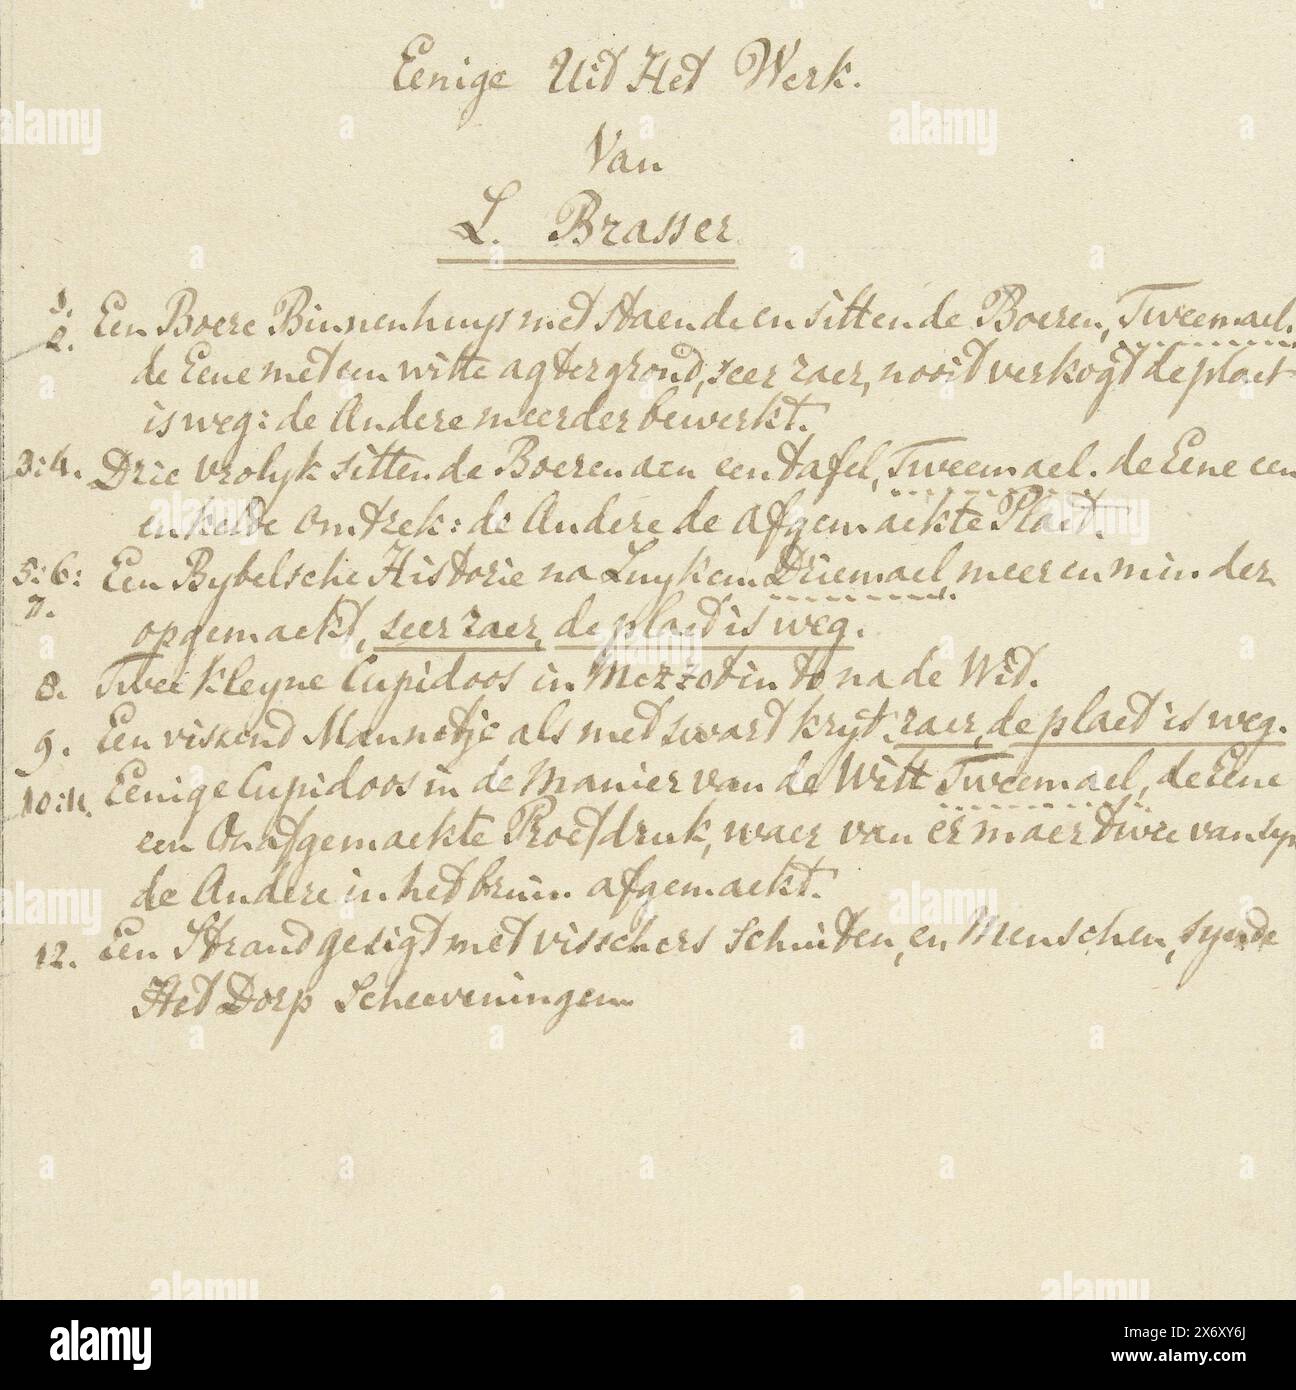 Eenige Uit Het Werk.
Van
L. Brasser
1. 2. Een Boere Binnenhuys met Staende en sittende Boeren, Tweemael.
de Eene met een witte agtergrond, seer raer, nooit verkogt de plaet
is weg: de Andere meerder bewerkt.
3:4. Drie vrolyk sittende Boeren aen een tafel, Tweemael. de Eene een
enkelde omtrek: de Andere de afgemaekte Plaet.
5:6: 7. Een Bybelsche Historie na Luyken Driemael, meer en minder
opgemaekt, seer raer, de plaet is weg.
8. Twee kleyne Cupidoos in Mezzotinto na de Wit.
9. Een vissend Mannetje als met swart kryt, raer, de plaet is weg.
10:11. Eenige Cupidoos in de Manier van de Witt Tweemael, de Eene
een Onafgemaekte Proefdruk, waer van er maer twee van syn
de Andere in het bruin afgemaekt.
12. Een Strand gesigt met visschers Schuiten, en Menschen, synde
Het Dorp Scheeveningen
alamy
a
Image ID: 2X6XY6J
www.alamy.com